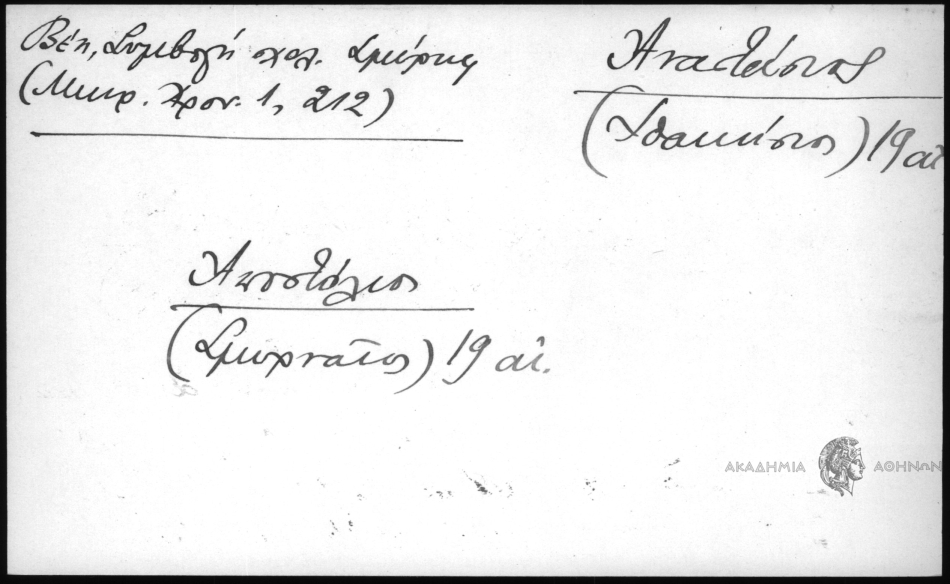 Βέη, Συμβολή σχολ. Σμύρνης
(Μικρ. Χρον. 1, 212)
Ἀναστάσιος
(Ἰθακήσιος) 19 αἰ
Ἀποστόλιος
(Σμυρναῖος) 19 αἰ.
ΑΚΑΔΗΜΙΑ ΑΘΗΝΩΝ